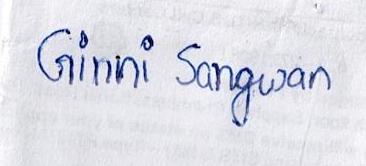 Ginni Sangwan